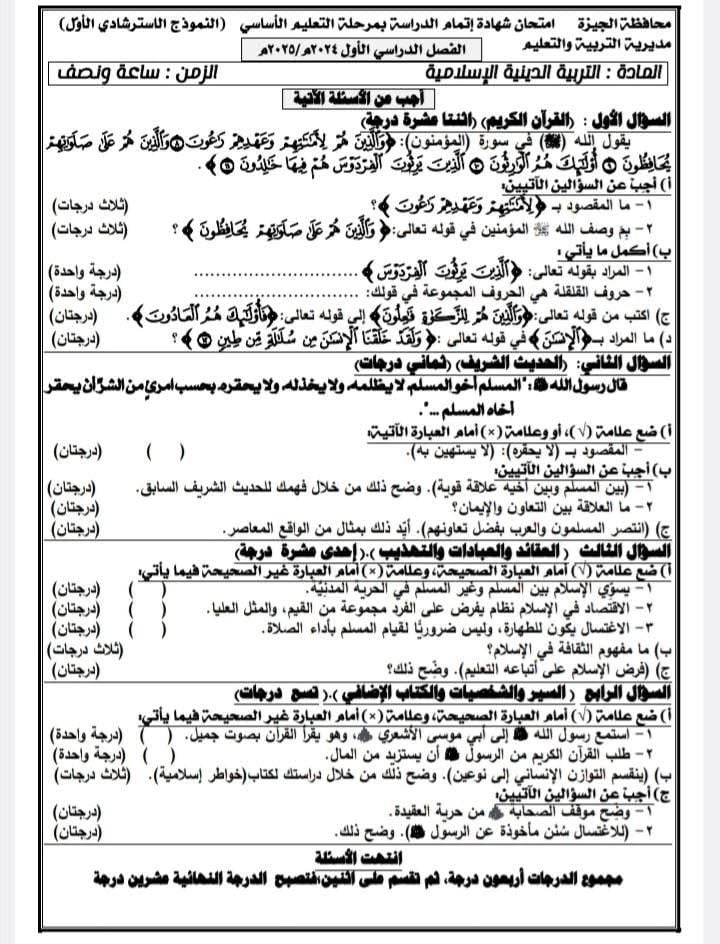 محافظة الجيزة امتحان شهادة إتمام الدراسة بمرحلة التعليم الأساسي (النموذج الاسترشادي الأول)
مديرية التربية والتعليم الفصل الدراسي الأول ٢٠٢٤م/٢٠٢٥م
المادة : التربية الدينية الإسلامية الزمن : ساعة ونصف
أجب عن الأسئلة الآتية
السؤال الأول : (القرآن الكريم) (اثنتا عشرة درجة)
يقول الله (ﷻ) في سورة (المؤمنون): ﴿وَالَّذِينَ هُمْ لِأَمَانَاتِهِمْ وَعَهْدِهِمْ رَاعُونَ ٨ وَالَّذِينَ هُمْ عَلَى صَلَوَاتِهِمْ
يُحَافِظُونَ ٩ أُوْلَئِكَ هُمُ الْوَارِثُونَ ١٠ الَّذِينَ يَرِثُونَ الْفِرْدَوْسَ هُمْ فِيهَا خَالِدُونَ ١١﴾.
أ) أجب عن السؤالين الآتيين:
١- ما المقصود بـ ﴿لِأَمَانَاتِهِمْ وَعَهْدِهِمْ رَاعُونَ﴾؟ (ثلاث درجات)
٢- بِمَ وصف الله ﷻ المؤمنين في قوله تعالى: ﴿وَالَّذِينَ هُمْ عَلَى صَلَوَاتِهِمْ يُحَافِظُونَ﴾؟ (ثلاث درجات)
ب) أكمل ما يأتي :
١- المراد بقوله تعالى: ﴿الَّذِينَ يَرِثُونَ الْفِرْدَوْسَ﴾ ............................ (درجة واحدة)
٢- حروف القلقلة هي الحروف المجموعة في قولك: ............................ (درجة واحدة)
ج) اكتب من قوله تعالى: ﴿وَالَّذِينَ هُمْ لِلزَّكَوةِ فَاعِلُونَ﴾ إلى قوله تعالى: ﴿فَأُوْلَئِكَ هُمُ الْعَادُونَ﴾. (درجتان)
د) ما المراد بـ ﴿الْإِنسَانَ﴾ في قوله تعالى : ﴿وَلَقَدْ خَلَقْنَا الْإِنسَانَ مِن سُلَالَةٍ مِّن طِينٍ ١٢﴾؟ (درجتان)
السؤال الثاني: (الحديث الشريف) (ثماني درجات)
قال رسول الله ﷺ: "المسلم أخو المسلم، لا يظلمه، ولا يخذله، ولا يحقره، بحسب امرئٍ من الشرّ أن يحقر
أخاه المسلم ...".
أ) ضع علامة (√)، أو وعلامة (×) أمام العبارة الآتية:
- المقصود بـ (لا يحقره): (لا يستهين به). ( ) (درجتان)
ب) أجب عن السؤالين الآتيين:
١- (بين المسلم وبين أخيه علاقة قوية). وضح ذلك من خلال فهمك للحديث الشريف السابق. (درجتان)
٢- ما العلاقة بين التعاون والإيمان؟ (درجتان)
ج) (انتصر المسلمون والعرب بفضل تعاونهم). أيّد ذلك بمثال من الواقع المعاصر. (درجتان)
السؤال الثالث (العقائد والعبادات والتهذيب).( إحدى عشرة درجة)
أ) ضع علامة (√) أمام العبارة الصحيحة، وعلامة (×) أمام العبارة غير الصحيحة فيما يأتي:
١- يسوّي الإسلام بين المسلم وغير المسلم في الحرية المدنيّة. ( ) (درجتان)
٢- الاقتصاد في الإسلام نظام يفرض على الفرد مجموعة من القيم، والمثل العليا. ( ) (درجتان)
٣- الاغتسال يكون للطهارة، وليس ضروريًا لقيام المسلم بأداء الصلاة. ( ) (درجتان)
ب) ما مفهوم الثقافة في الإسلام؟ (ثلاث درجات)
ج) (فرض الإسلام على أتباعه التعليم). وضّح ذلك؟ (درجتان)
السؤال الرابع (السير والشخصيات والكتاب الإضافي ).( تسع درجات)
أ) ضع علامة (√) أمام العبارة الصحيحة، وعلامة (×) أمام العبارة غير الصحيحة فيما يأتي:
١- استمع رسول الله ﷺ إلى أبي موسى الأشعري ، وهو يقرأ القرآن بصوت جميل. ( ) (درجة واحدة)
٢- طلب القرآن الكريم من الرسول ﷺ أن يستزيد من المال. ( ) (درجة واحدة)
ب) (ينقسم التوازن الإنساني إلى نوعين). وضح ذلك من خلال دراستك لكتاب(خواطر إسلامية). (ثلاث درجات)
ج) أجب عن السؤالين الآتيين:
١- وضح موقف الصحابة من حرية العقيدة. (درجتان)
٢- (للاغتسال سُنن مأخوذة عن الرسول ﷺ). وضح ذلك. (درجتان)
انتهت الأسئلة
مجموع الدرجات أربعون درجة، ثم تقسم على اثنين،فتصبح الدرجة النهائية عشرين درجة